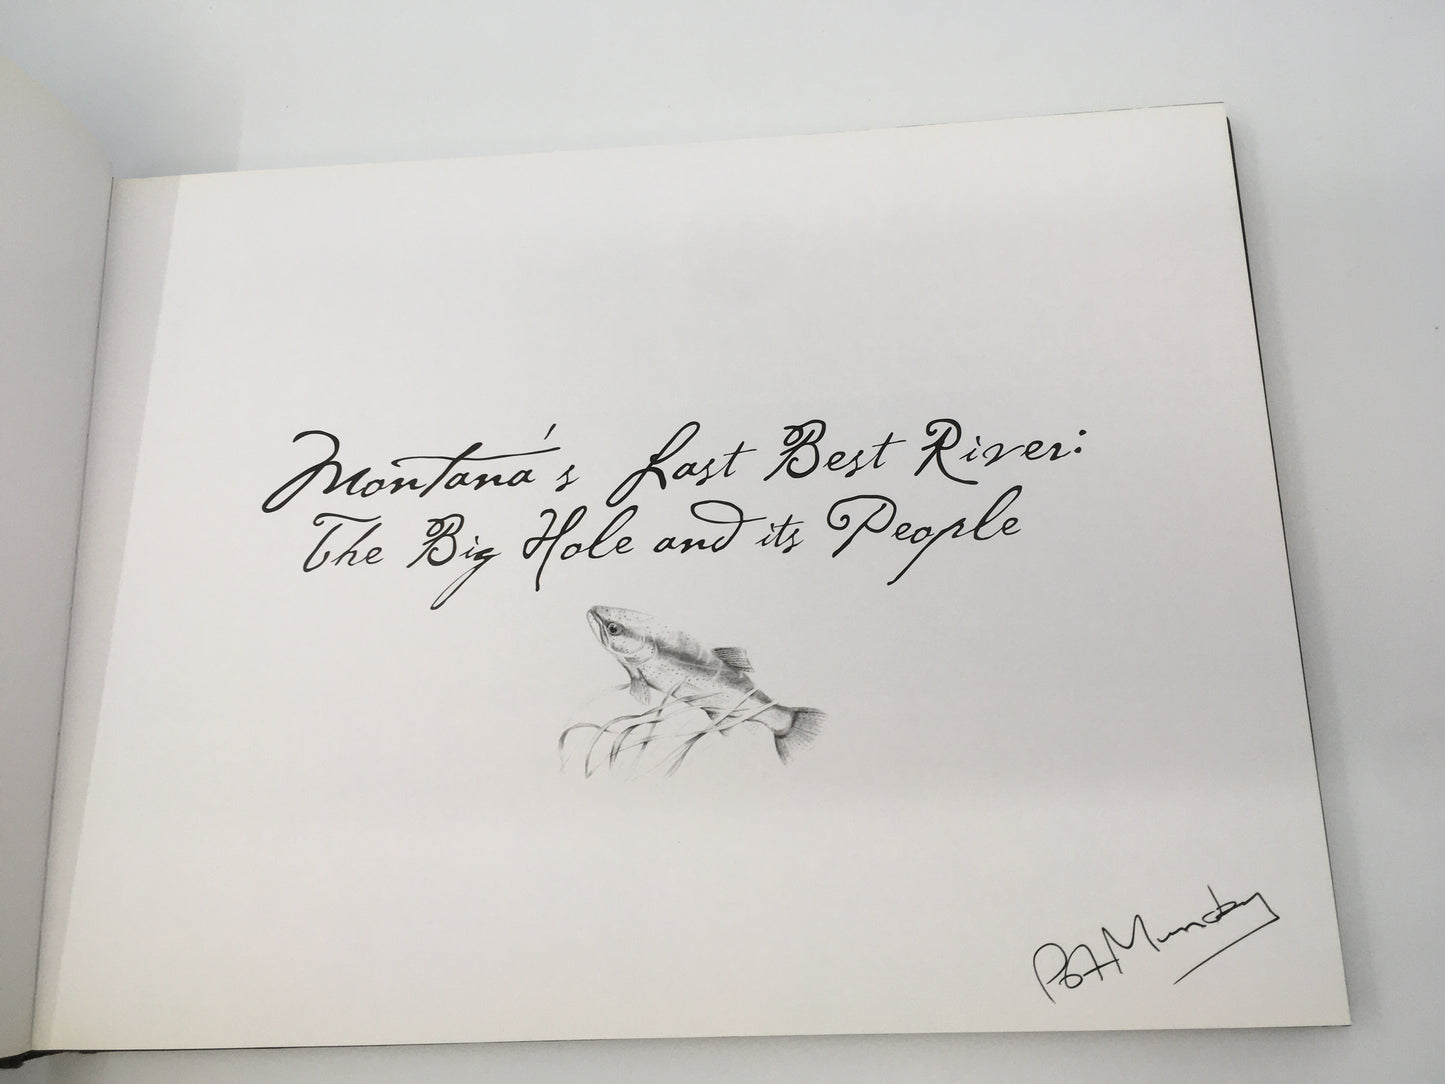 Montana's Last Best River:
The Big Hole and its People
Pat Munday